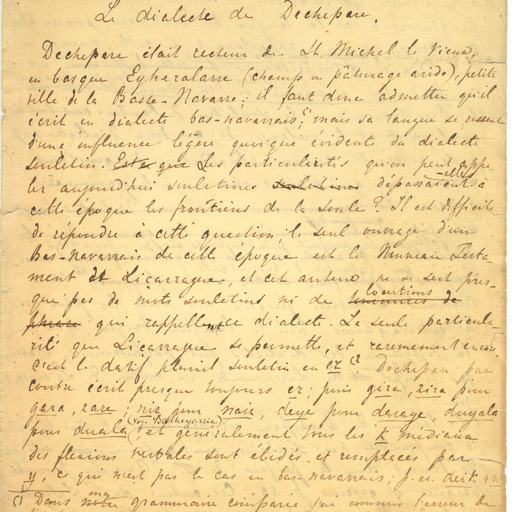 Le dialecte de Dechepare.
Dechepare était recteur de St Michel le Vieux,
en basque Eyheralarre (champ ou pâturage aride), petite
ville de la Basse-Navarre; il faut donc admettre qu'il
écrit en dialecte bas-navarrais; mais sa langue se ressent
d'une influence légère quoique évidente du dialecte
souletin. Est-ce que Les particularités qu'on peut appe-
ler aujourd'hui souletines souletines dépassaient-elles à
cette époque les frontières de la Soule? Il est difficile
de répondre à cette question; le seul ouvrage d'un
Bas-navarrais de cette époque est le Nouveau Testa-
ment de Liçarrague, et cet auteur ne se sert pres-
que pas de mots souletins ni de locutions
phrase qui rappellent ce dialecte. La seule particula-
rité que Liçarrague se permette, et rarement encore,
c'est le datif pluriel souletin en er (1) Dechepare par
contre écrit presque toujours er; puis gira, zira pour
gara, zara; niz pour naiz, deye pour darage, duyala
pour duala (voy. Balhegarria) et généralement tous les k médiaux
des flexions verbales sont élidés et remplacés par
y, ce qui n'est pas le cas en bas-navarrais; p. ex. deit
(1) Dans ma grammaire comparée j'ai commis l'erreur de